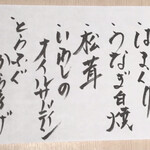 はまぐり
うなぎ白焼
松茸
いわしの
オイルサーディン
とらふぐ
からあげ